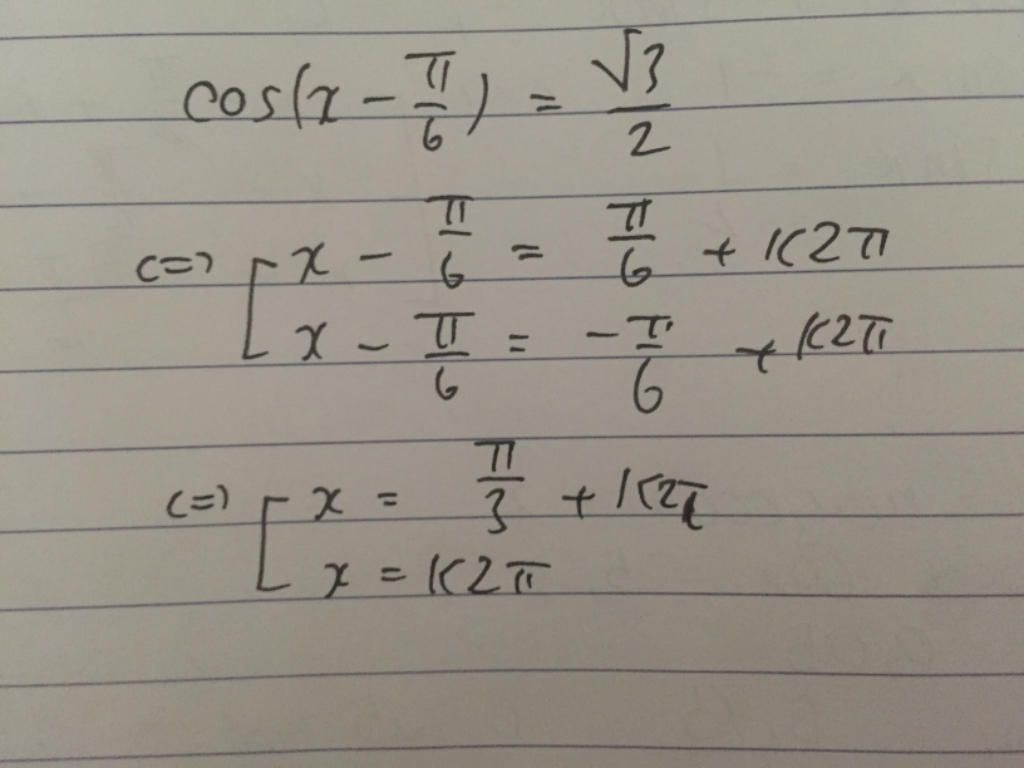 cos(x - π/6) = √3/2
<=> [ x - π/6 = π/6 + k2π
x - π/6 = -π/6 + k2π
<=> [ x = π/3 + k2π
x = k2π